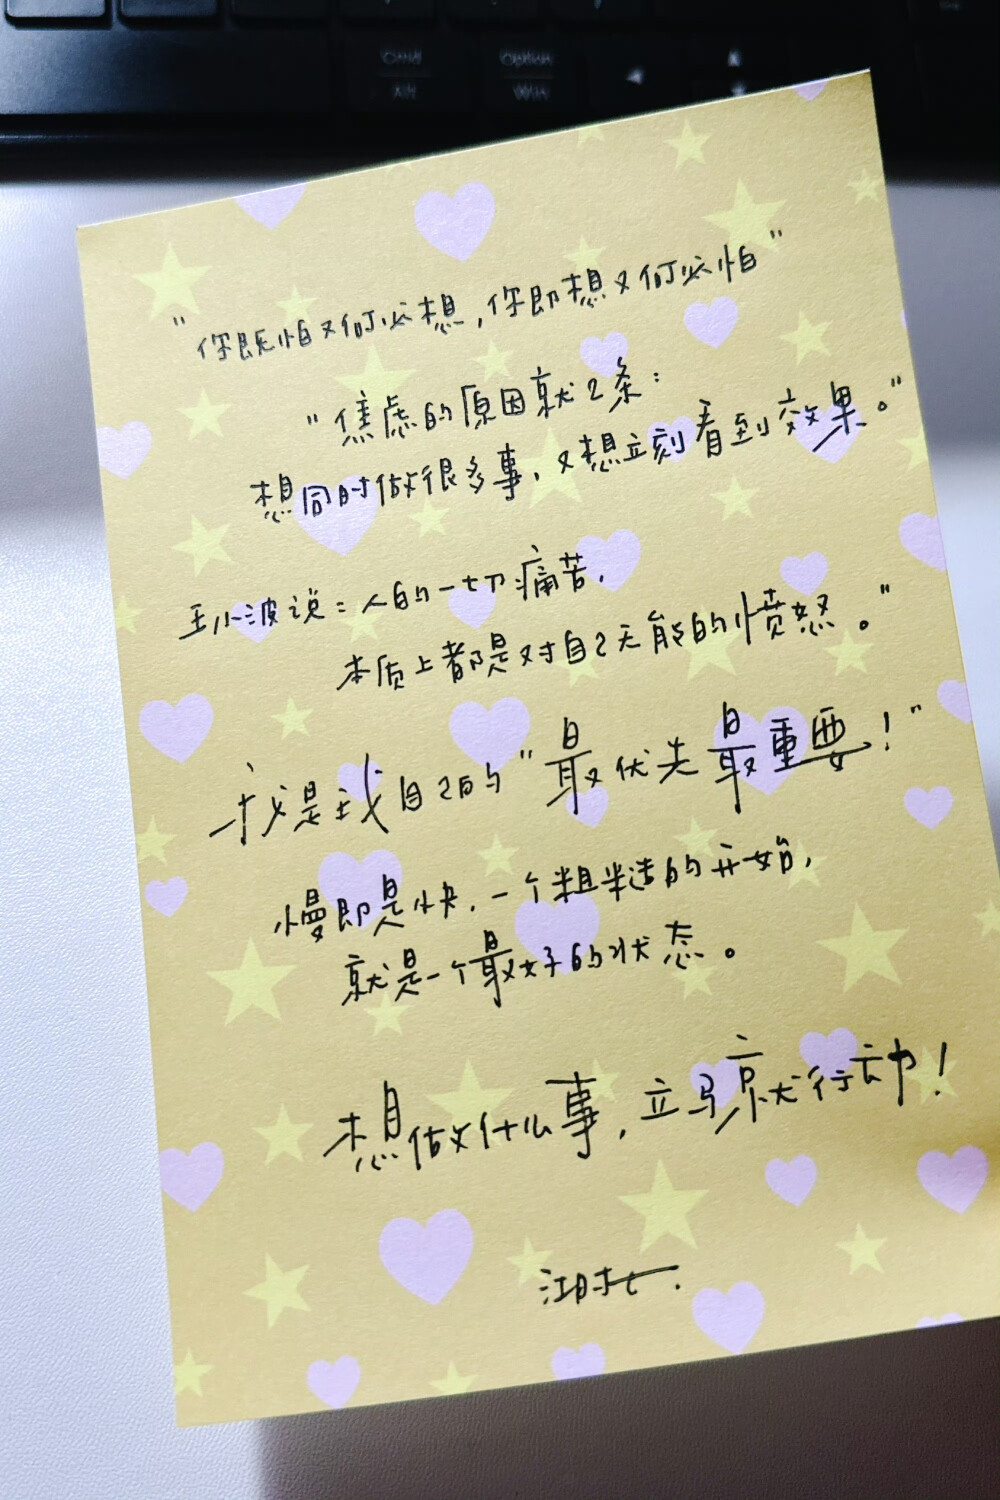 Cmd
Option
Alt
Win
"你既怕又何必想,你即想又何必怕"
"焦虑的原因就2条:
想同时做很多事,又想立刻看到效果。"
王小波说:人的一切痛苦,
本质上都是对自己无能的愤怒。"
我是我自己的"最优先最重要!"
慢即是快,一个粗糙的开始,
就是一个最好的状态。
想做什么事,立马就行动!
江时七.